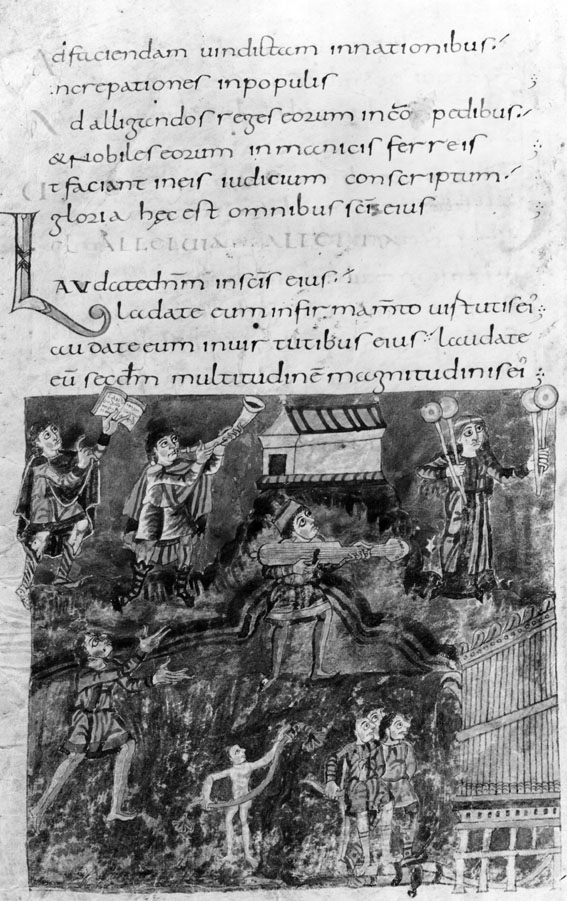 dfaciendam uindictam innationibus
ncrepationes inpopulis
d alligandos reges eorum in cō pedibus
& Nobiles eorum in manicis ferreis
t faciant ineis iudicium conscriptum
gloria hęc est omnibus sc̄is eius
LAUdatednm̄ in sc̄is eius
laudate eum infirmam̄to uirtutis ei;
au date eum inuir tutibus eius laudate
eū secdm̄ multitudinē magnitudinis ei;